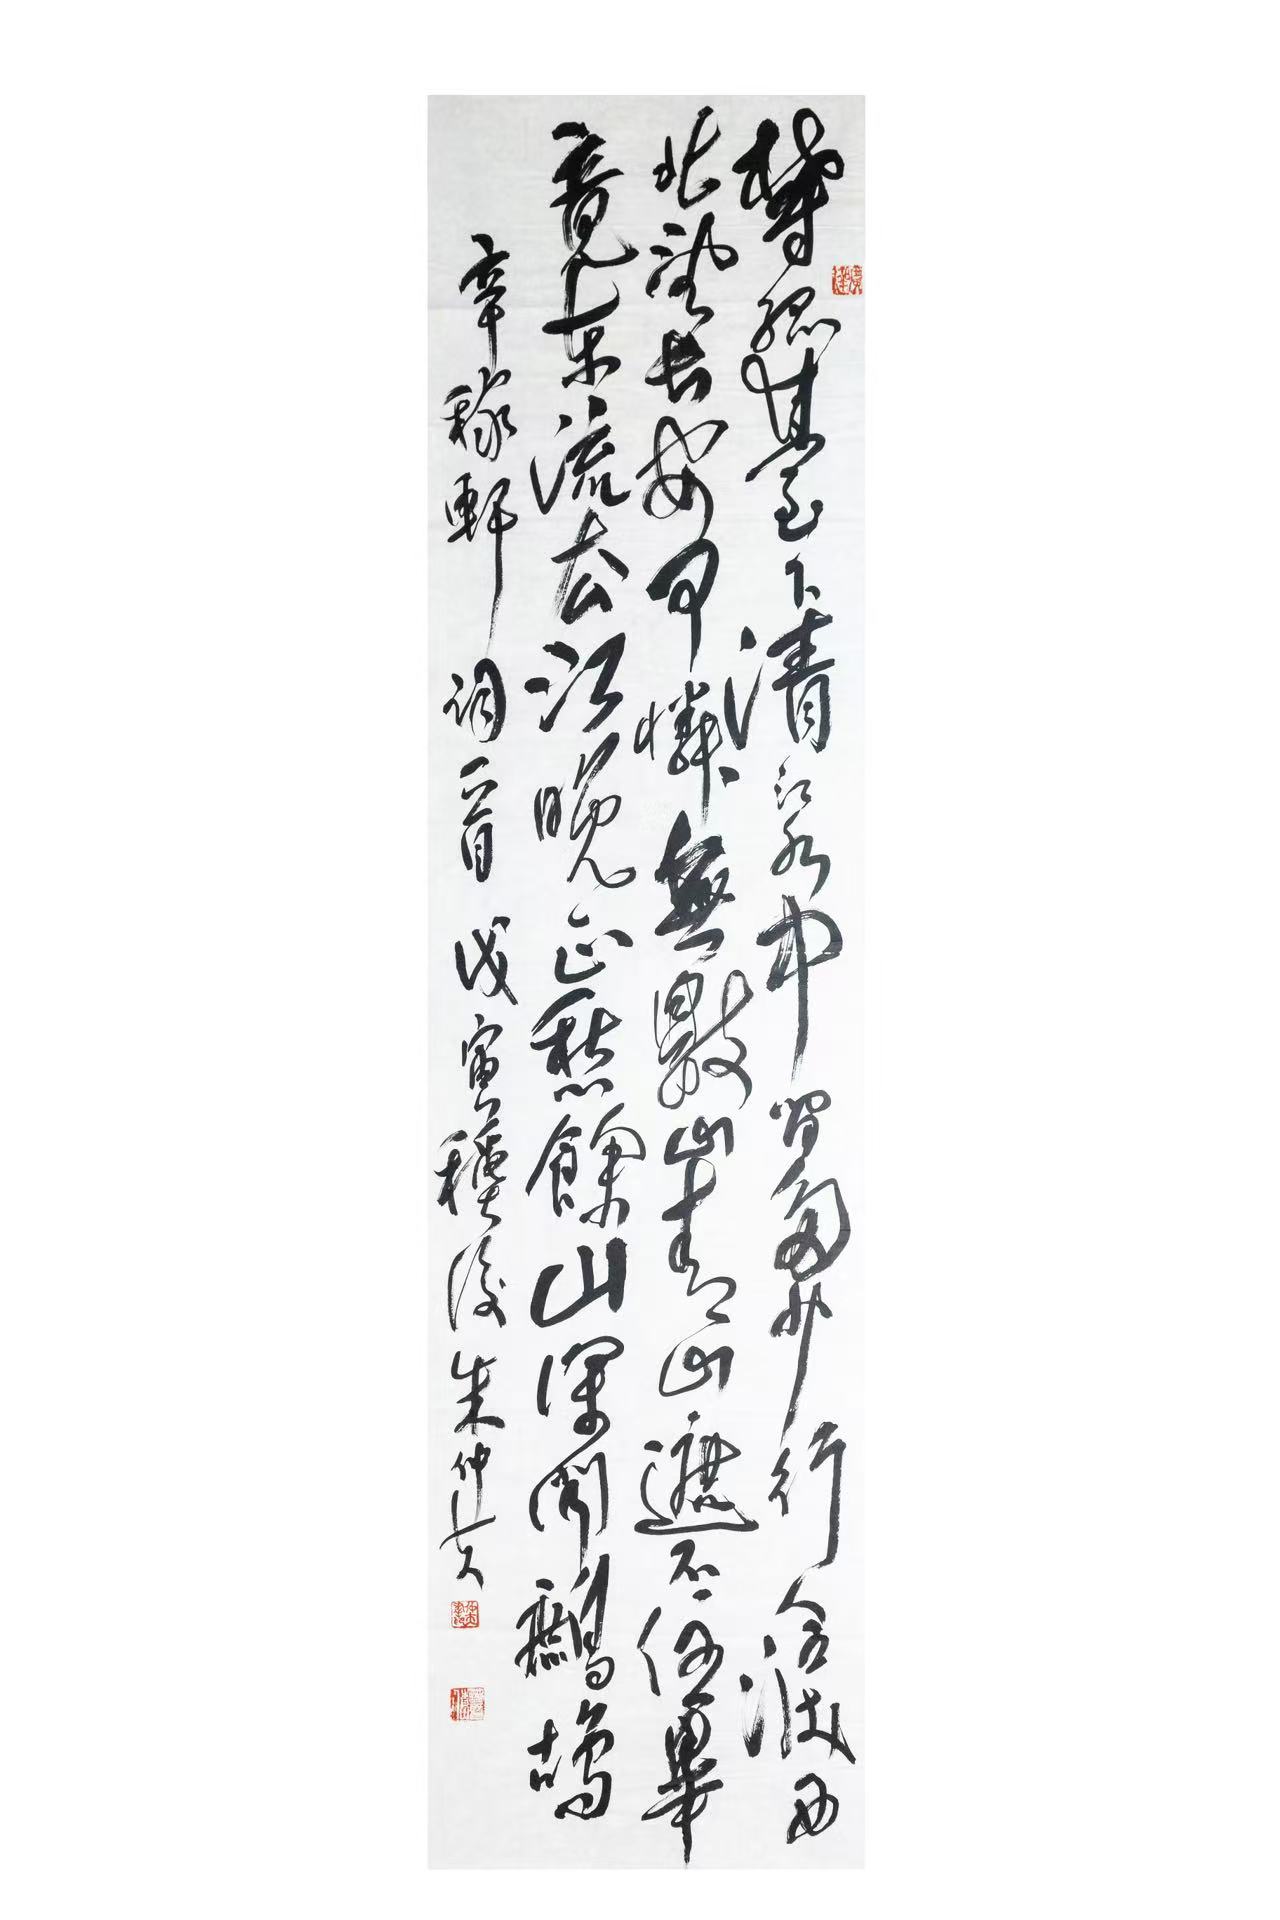 鬱孤臺下清江水中間多少行人淚西
北望長安可憐無數山青山遮不住畢
竟東流去江晚正愁餘山深聞鷓鴣
辛稼軒詞一首 戊寅後 朱仲夫